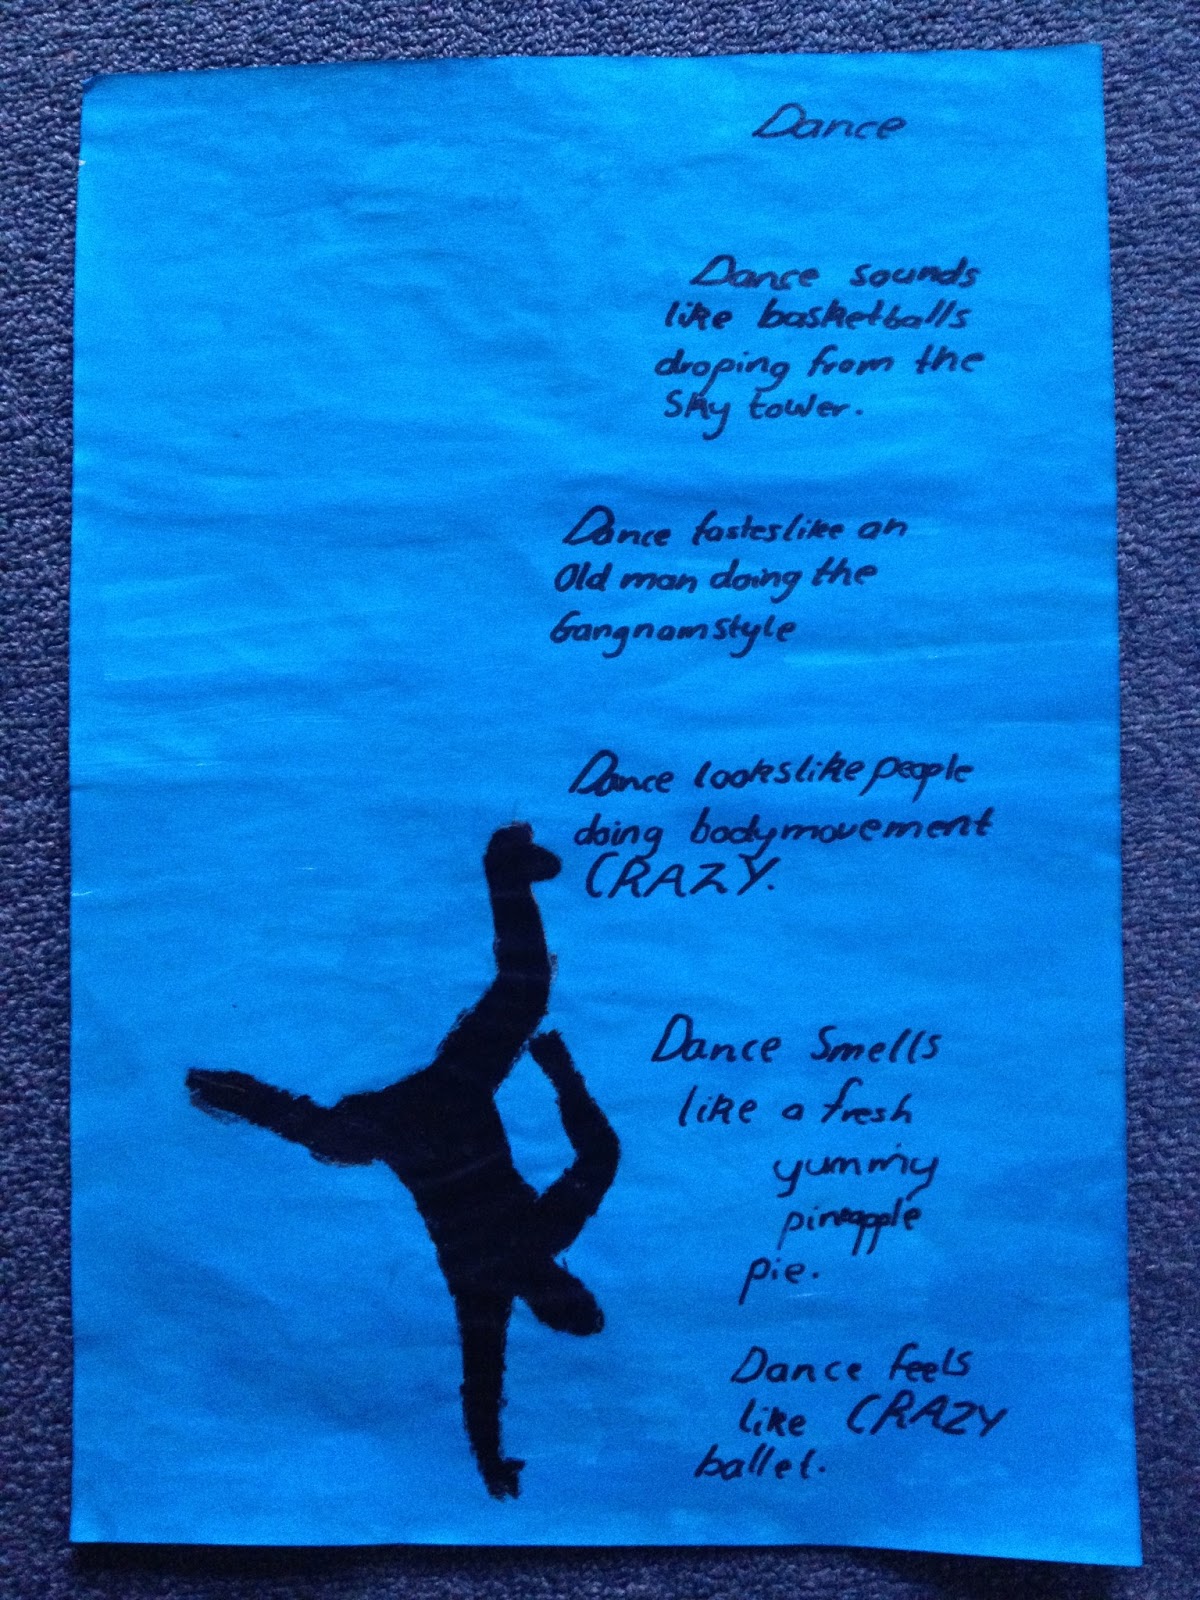 Dance
Dance sounds
like basketballs
droping from the
Sky tower.
Dance tasteslike an
Old man doing the
Gangnamstyle
Dance lookslike people
doing bodymovement
CRAZY.
Dance Smells
like a fresh
yummy
pineapple
pie.
Dance feels
like CRAZY
ballet.